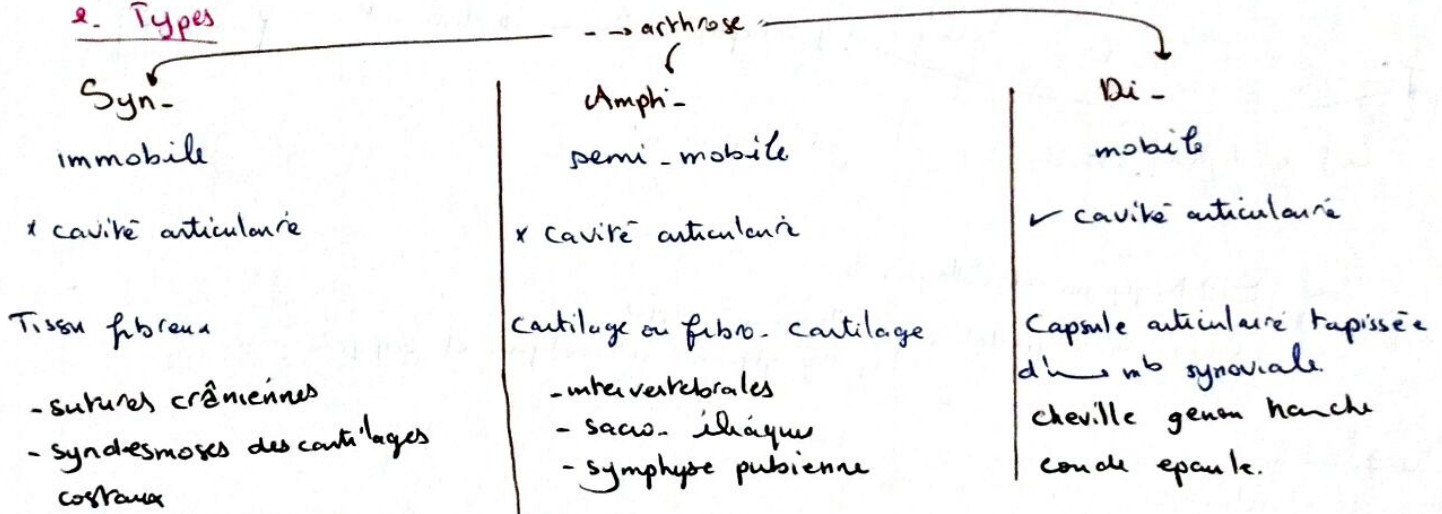 2. Types
--→ arthrose
Syn-
immobile
x cavité articulaire
Tissu fibreux
- sutures crâniennes
- syndesmoses des cartilages
costaux
Amphi-
semi-mobile
x cavité articulaire
Cartilage ou fibro-cartilage
- intervertebrales
- sacro-iliaques
- symphyse pubienne
Di-
mobile
✓ cavité articulaire
Capsule articulaire tapissée
d'une mb synoviale.
cheville genou hanche
coude epaule.